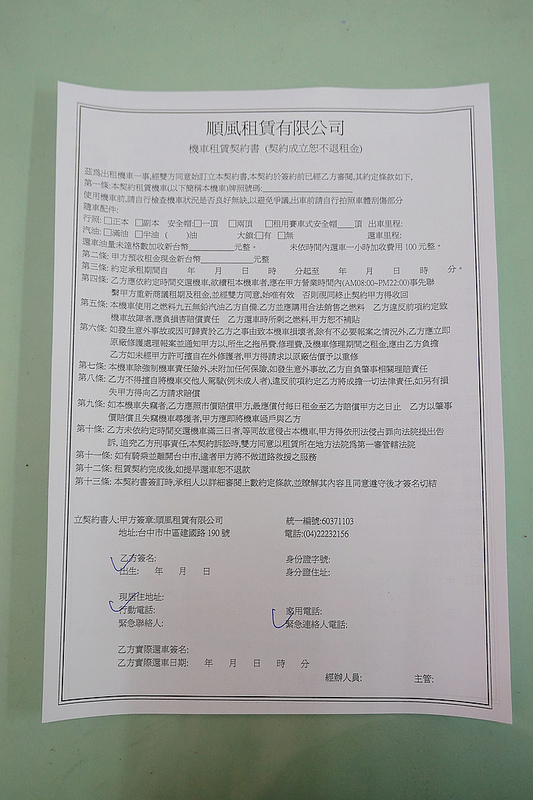 順風租賃有限公司
機車租賃契約書 (契約成立恕不退租金)
茲為出租機車一事,經雙方同意始訂立本契約書,本契約於簽約前已經乙方審閱,其約定條款如下,
第一條:本契約租賃機車(以下簡稱本機車)牌照號碼:
使用機車前,請自行檢查機車狀況是否良好無缺,以避免爭議,出車前請自行拍照車體刮傷部分
隨車配件:
行照:□正本 □副本 安全帽:□一頂 □兩頂 □租用賽車式安全帽____頂 出車里程:
汽油:□滿油 □半油 ( )油 大鎖:□有 □無 還車里程:
還車油量未達格數加收新台幣________元整。 未依時間內還車一小時加收費用 100 元整。
第二條:甲方預收租金現金新台幣________元整
第三條:約定承租期間自 年 月 日 時 分起至 年 月 日 時 分。
第四條:乙方應依約定時間交還機車,欲續租本機車者,應在甲方營業時間內(AM08:00~PM22:00)事先聯
繫甲方重新商議租期及租金,並經雙方同意,始唯有效 否則視同終止契約甲方得收回
第五條:本機車使用之燃料九五無鉛汽油乙方自備,乙方並應購用合法銷售之燃料 乙方違反前項約定致
機車故障者,應負損害賠償責任 乙方還車時所剩之燃料,甲方恕不補貼
第六條:如發生意外事故或因可歸責於乙方之事由致本機車損壞者,除有不必要報案之情況外,乙方應立即
原廠修護處理報案並通知甲方以,所生之拖吊費.修理費,及機車修理期間之租金,應由乙方負擔
乙方如未經甲方許可擅自在外修護者,甲方得請求以原廠估價予以重修
第七條:本機車除強制機車責任險外,未附加任何保險,如發生意外事故,乙方自負肇事相關理賠責任
第八條:乙方不得擅自將機車交他人駕駛(例未成人者),違反前項約定乙方將成擔一切法律責任,如另有損
失甲方得向乙方請求賠償
第九條:如本機車失竊者,乙方應照市價賠償甲方,最應償付每日租金至乙方賠償甲方之日止 乙方以肇事
價賠償且失竊機車尋獲者,甲方應即將機車過戶與乙方
第十條:乙方未依約定時間交還機車滿三日者,等同故意侵占本機車,甲方得依刑法侵占罪向法院提出告
訴, 追究乙方刑事責任,本契約訴訟時,雙方同意以租賃所在地方法院為第一審管轄法院
第十一條:如有騎乘並離開台中市,違者甲方將不做道路救援之服務
第十二條:租賃契約完成後,如提早還車恕不退款
第十三條:本契約書簽訂時,承租人以詳細審閱上數約定條款,並瞭解其內容且同意遵守後才簽名切結
立契約書人:甲方簽章:順風租賃有限公司 統一編號:60371103
地址:台中市中區建國路 190 號 電話:(04)22232156
乙方簽名: 身份證字號:
出生: 年 月 日 身分證住址:
現居住地址:
行動電話: 家用電話:
緊急聯絡人: 緊急連絡人電話:
乙方實際還車簽名:
乙方實際還車日期: 年 月 日 時 分
經辦人員: 主管: